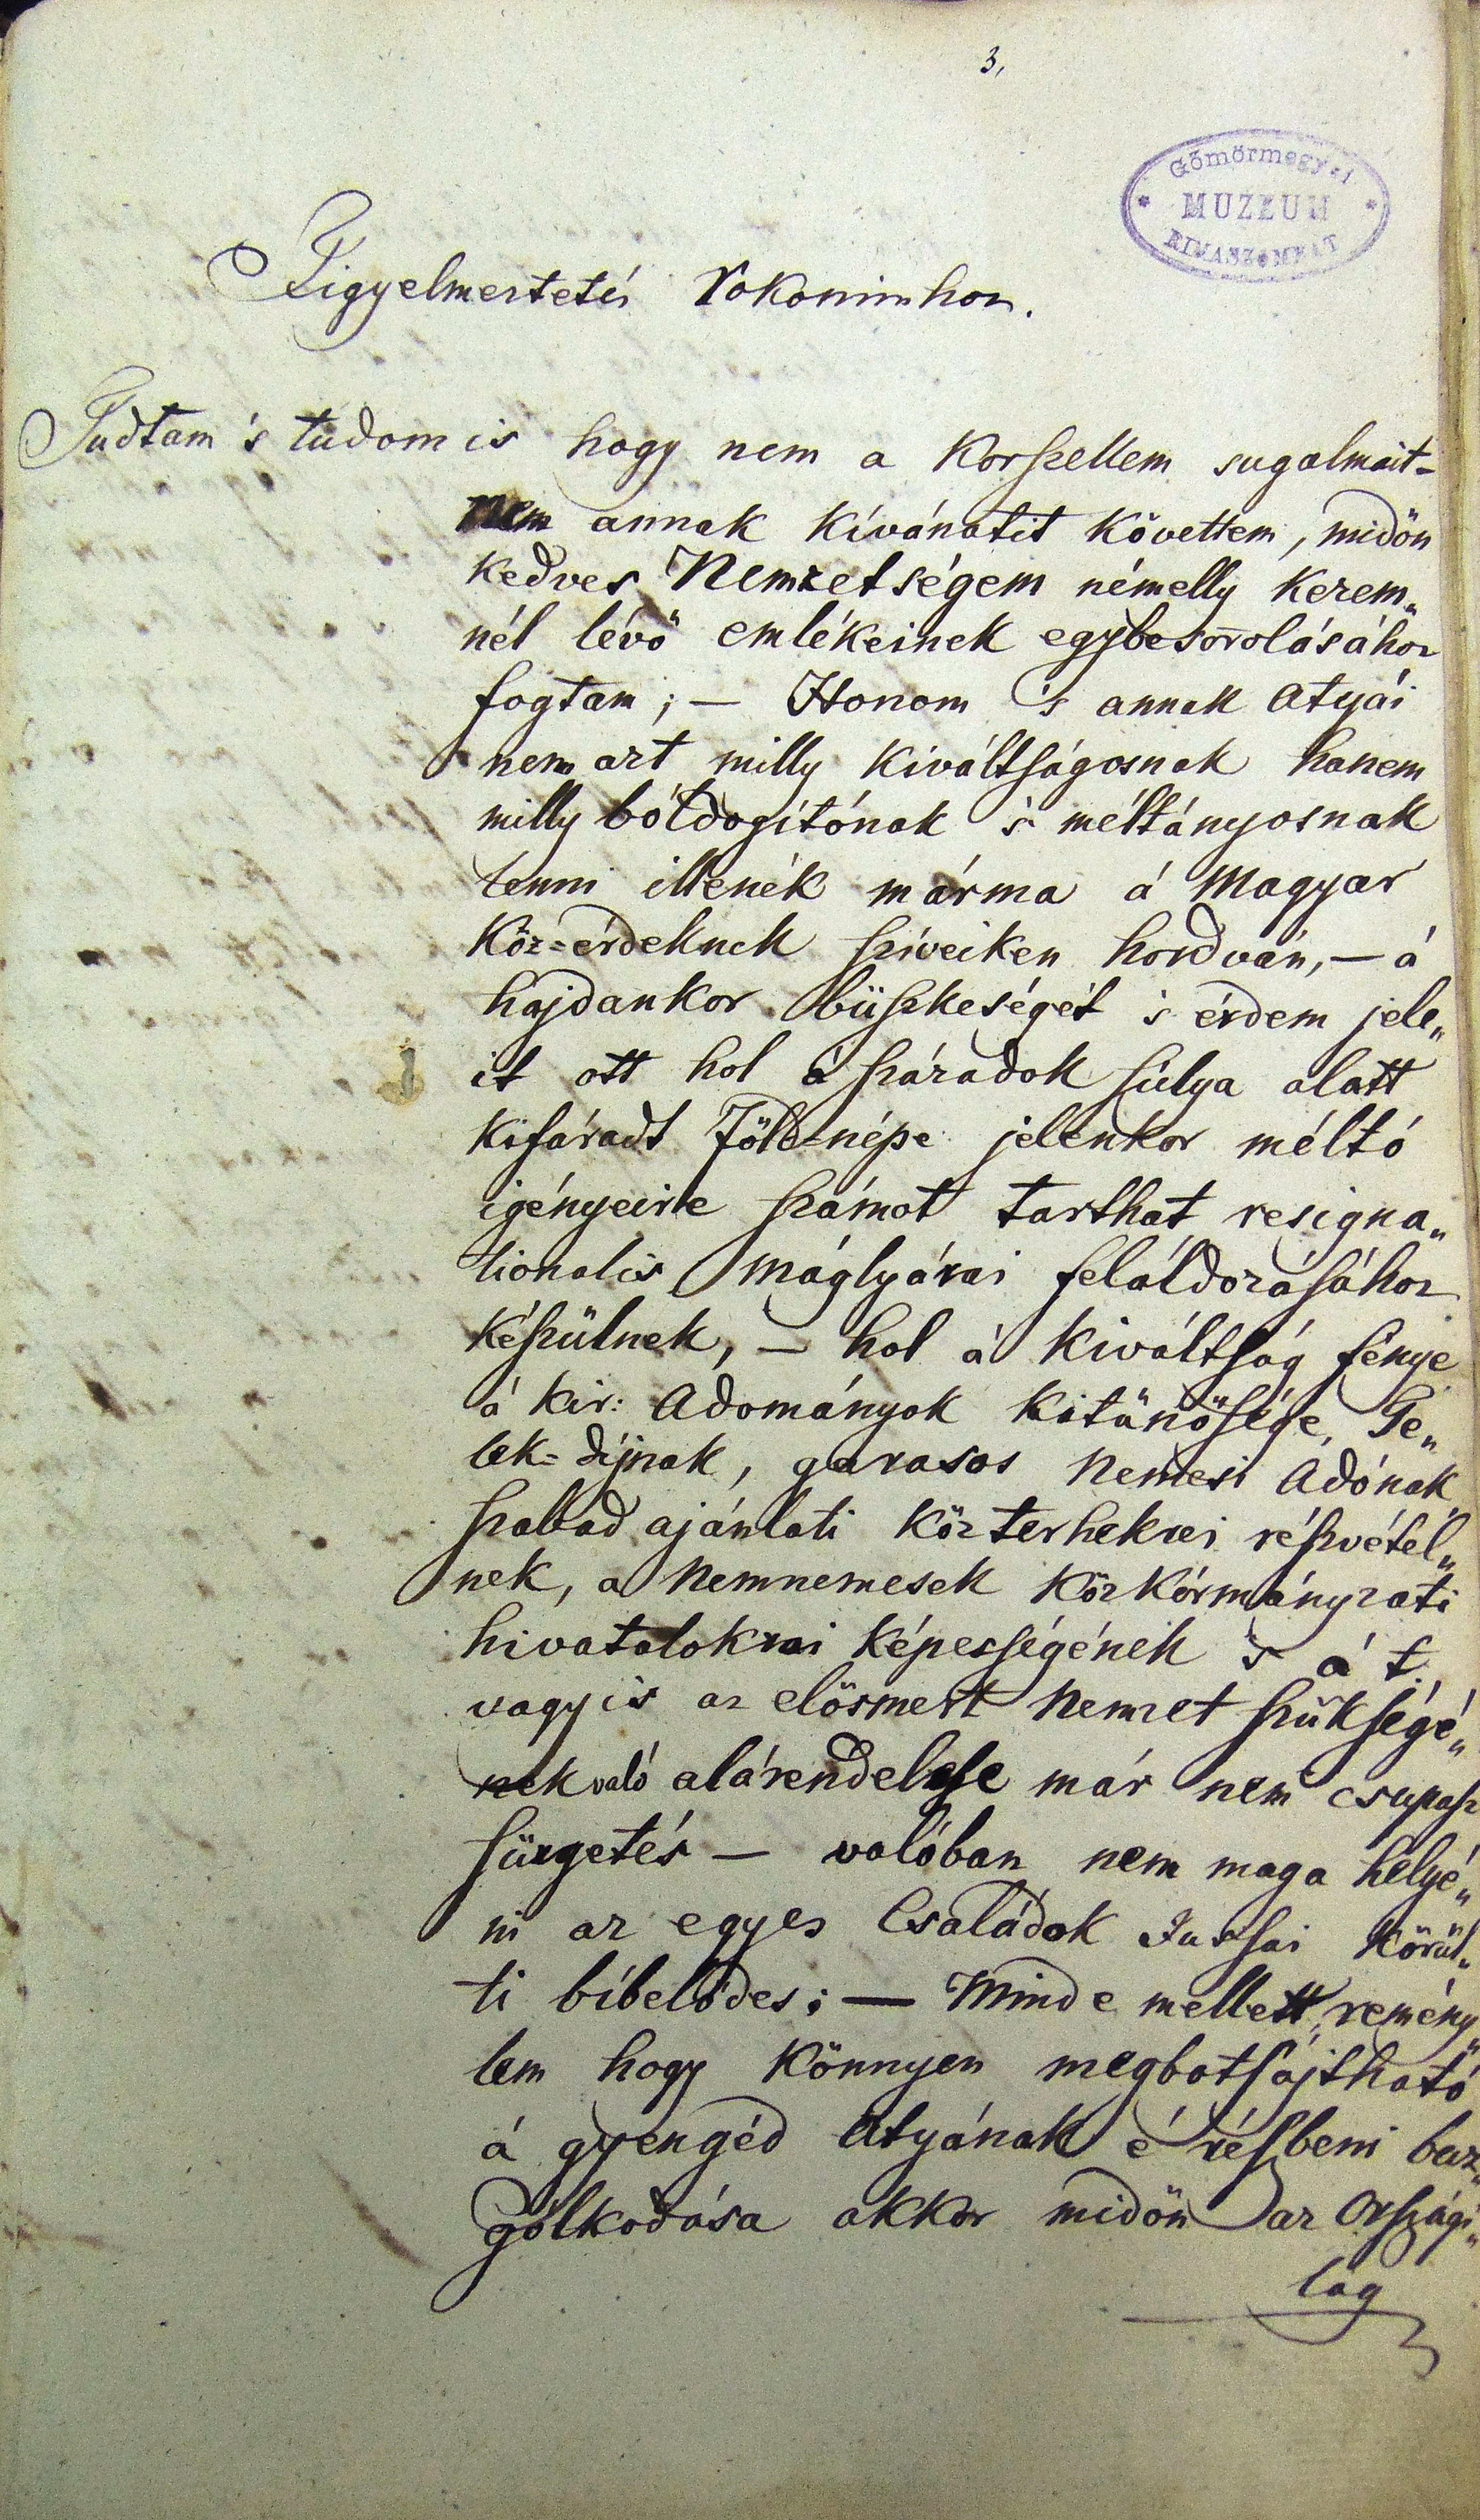 3,
Gömörmegyei
MUZEUM
RIMASZOMBAT
Figyelmeztetés Rokonimhoz.
Tudtam 's tudom is hogy nem a Korszellem sugalmait-
nem annak kívánatit követtem, midőn
kedves Nemzetségem némelly kezem„
nél lévő emlékeinek egybesorolásához
fogtam; — Honom 's annak atyái
nem azt milly kiváltságosnak hanem
milly bóldogítónak 's méltányosnak
lenni illenék márma á Magyar
köz=érdeknek szíveiken hordván, — á
hajdankor büszkeségét 's érdem jele„
it ott hol á századok súlya alatt
kifáradt Föld=népe jelenkor méltó
igényeire számot tarthat resigna„
tionalis máglyárai feláldozásához
készülnek, — hol á kiváltság fénye
á kir: Adományok kitünősége, Te„
lek=díjnak, garasos Nemesi Adónak
szabad ajánlati közterhekrei részvétel„
nek, a Nemnemesek közkórmányzati
hivatalokrai képességének 's á t.
vagyis az elősmert Nemzet szükségé„
nek való alárendelese már nem csupasz
sürgetés — valóban nem maga helyé„
ni az egyes Családok Jussai körül„
ti bíbelődes; — Mind e mellett, remény„
lem hogy könnyen megbotsájtható
á gyengéd atyának é részbeni buz„
gólkodása akkor midőn az Országi„
lag